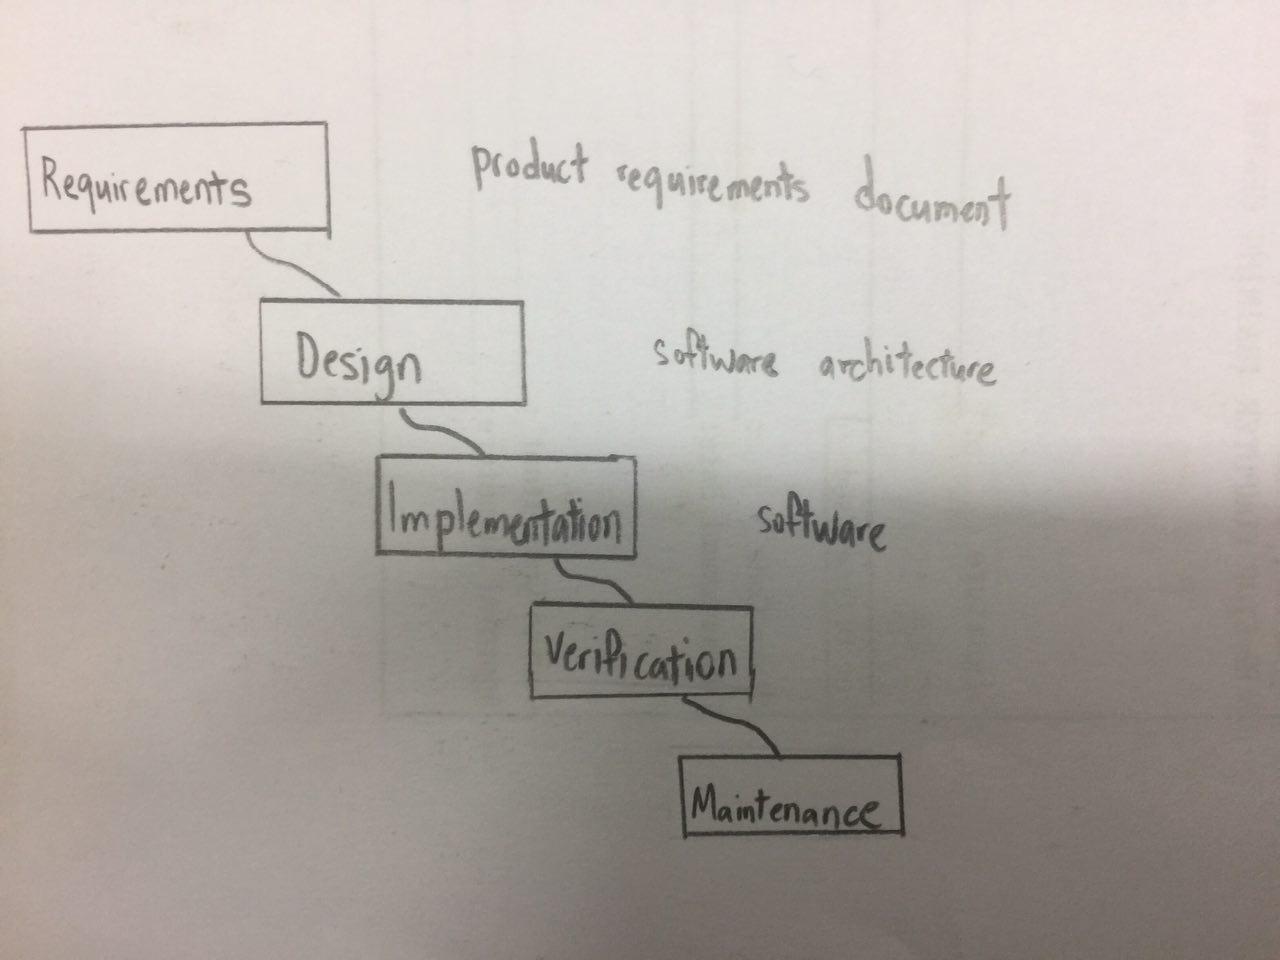 Requirements
product requirements document
Design
software architecture
Implementation
software
Verification
Maintenance